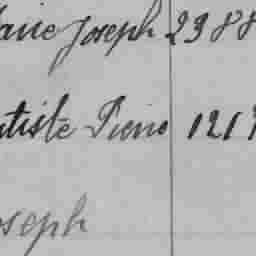 Marie Joseph 2988
Batiste Pierre 1217
Joseph